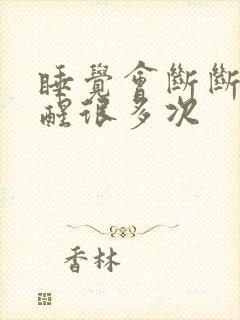 睡覺會斷斷
醒很多次
香林